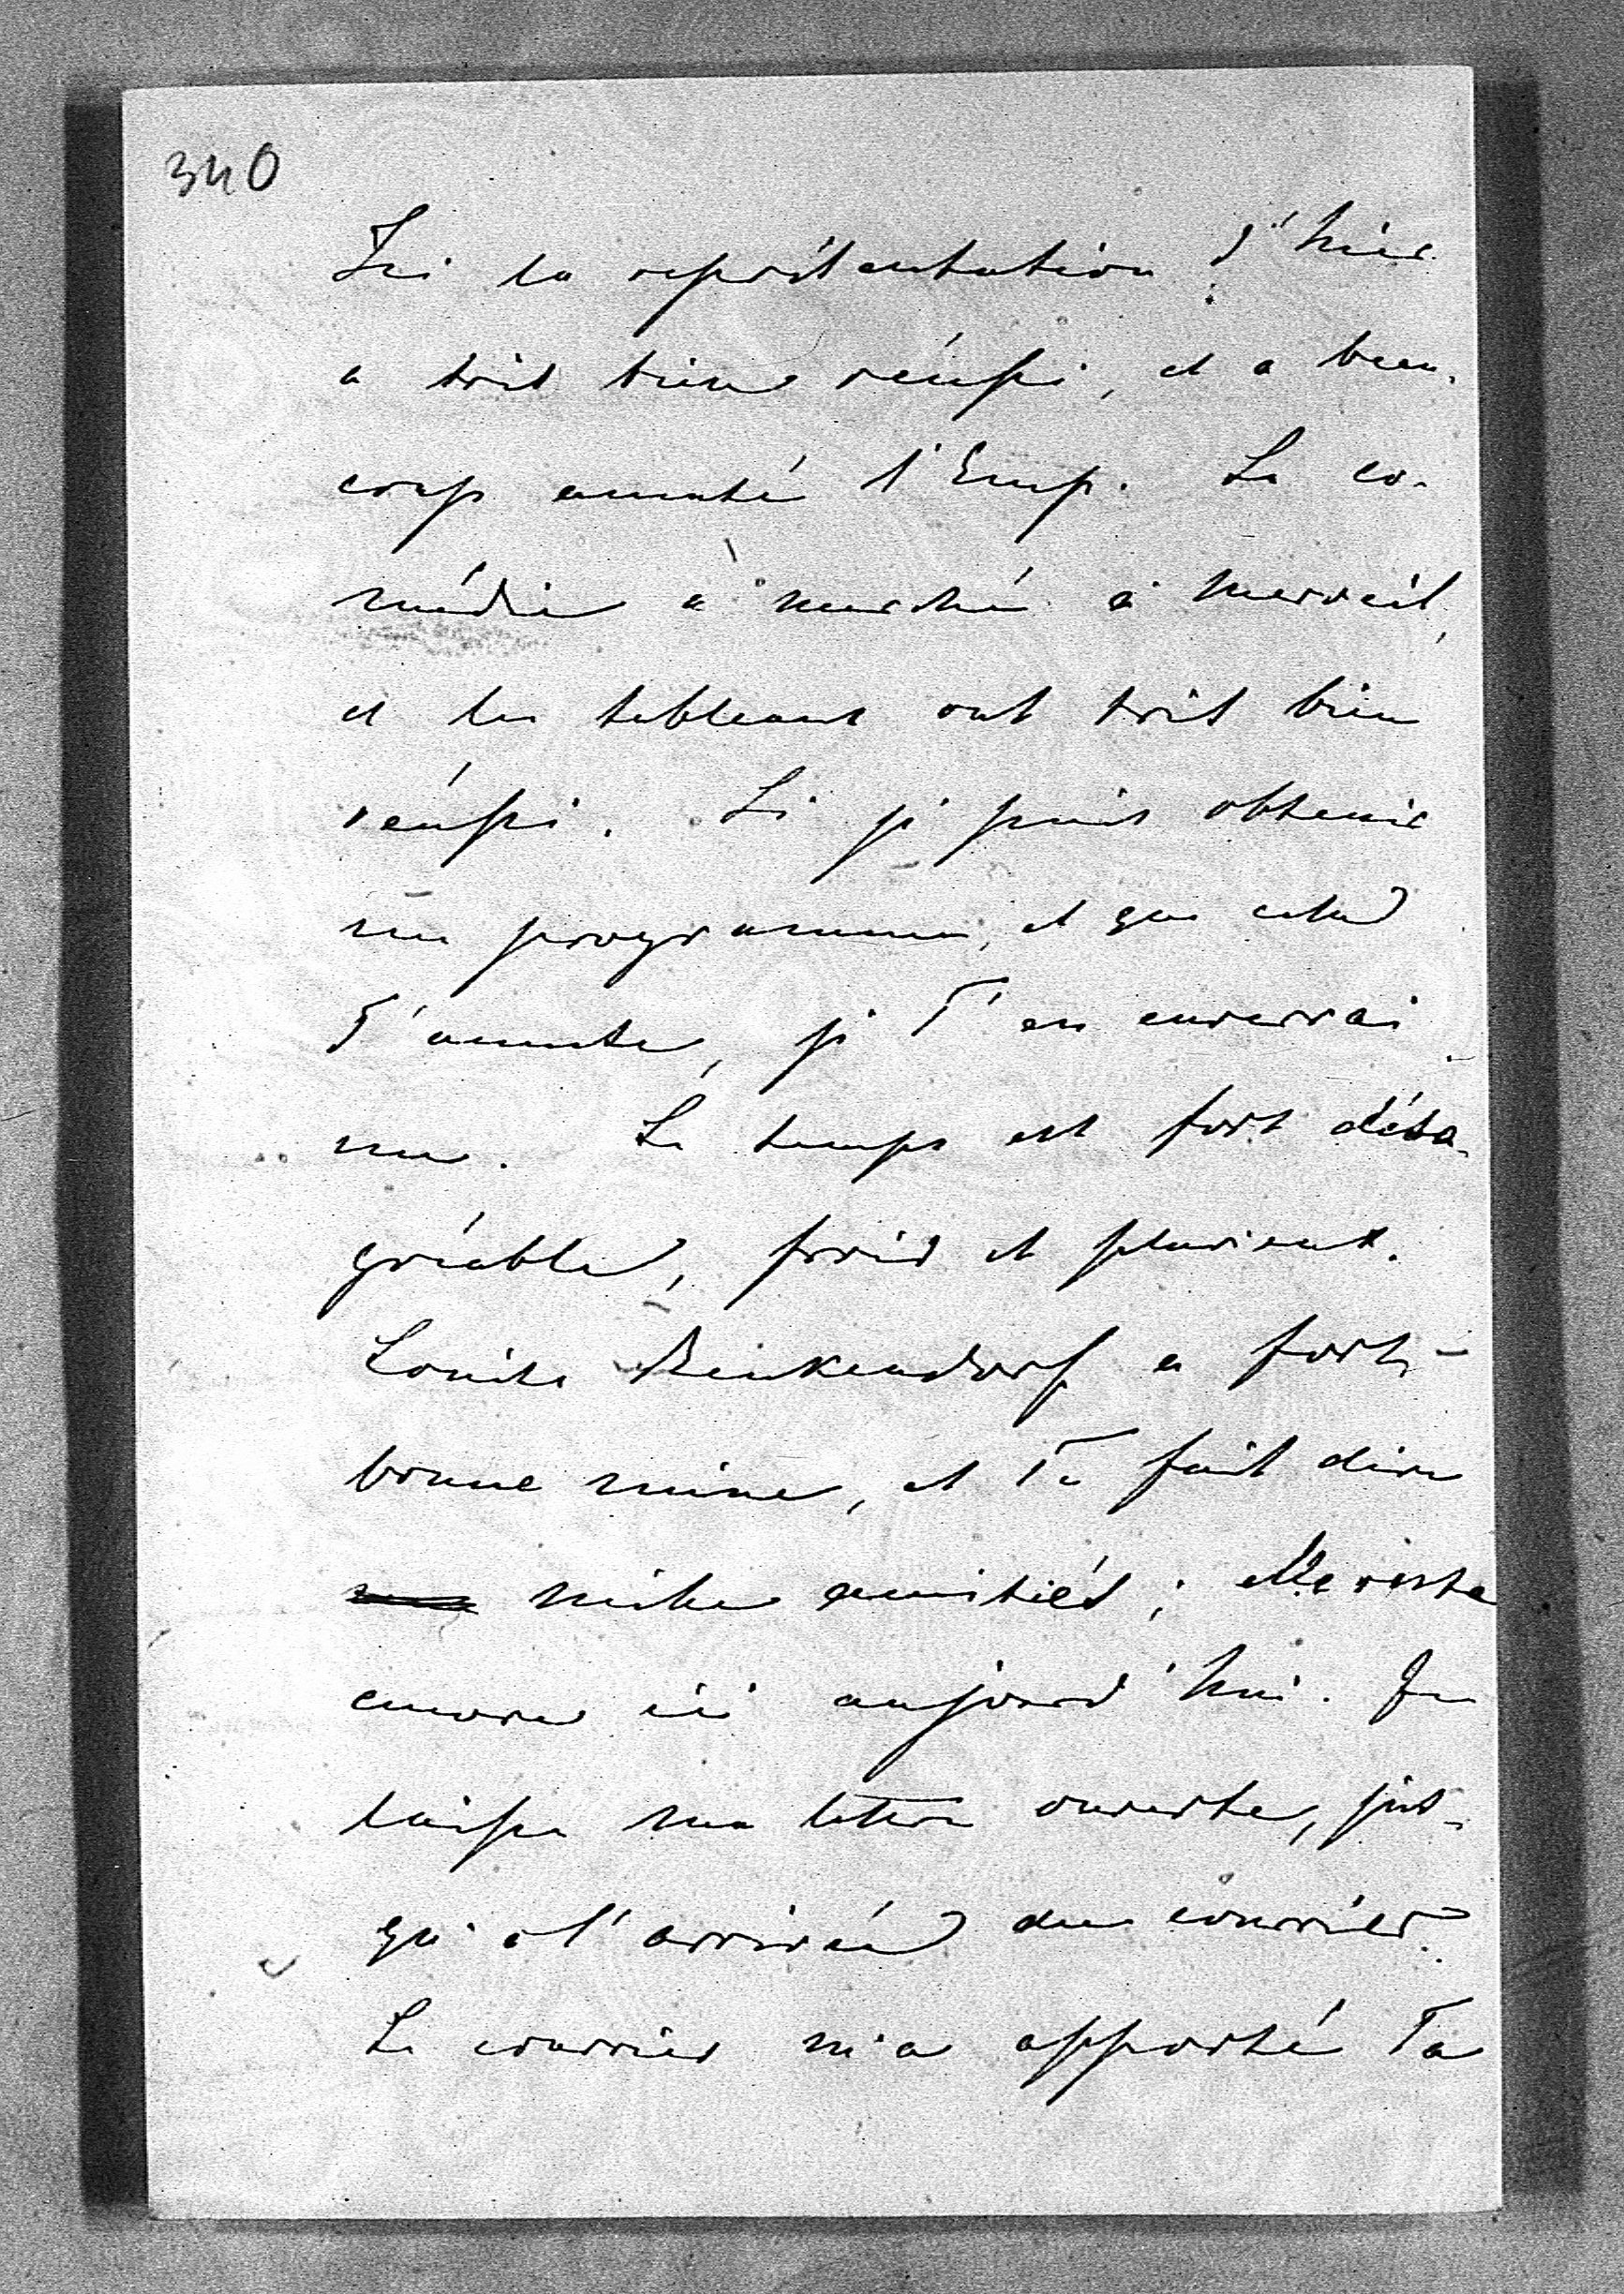 340
Ici la représentation d'hier
a très bien réussi, et a beau-
coup amusé l'Emp. La co-
médie a marché à merveil,
et les tableaux ont très bien
réussi. Si je puis obtenir
un programme, et que cela
T'amuse, je T'en enverrai
un. Le temps est fort désa-
gréable, froid et pluvieux.
Louise Benkendorf a fort
bonne mine, et Te fait dire
mille amitiés; elle reste
encore ici aujourd'hui. Je
laisse ma lettre ouverte, jus-
qu'à l'arrivée du courrier.
Le courrier m'a apporté Ta